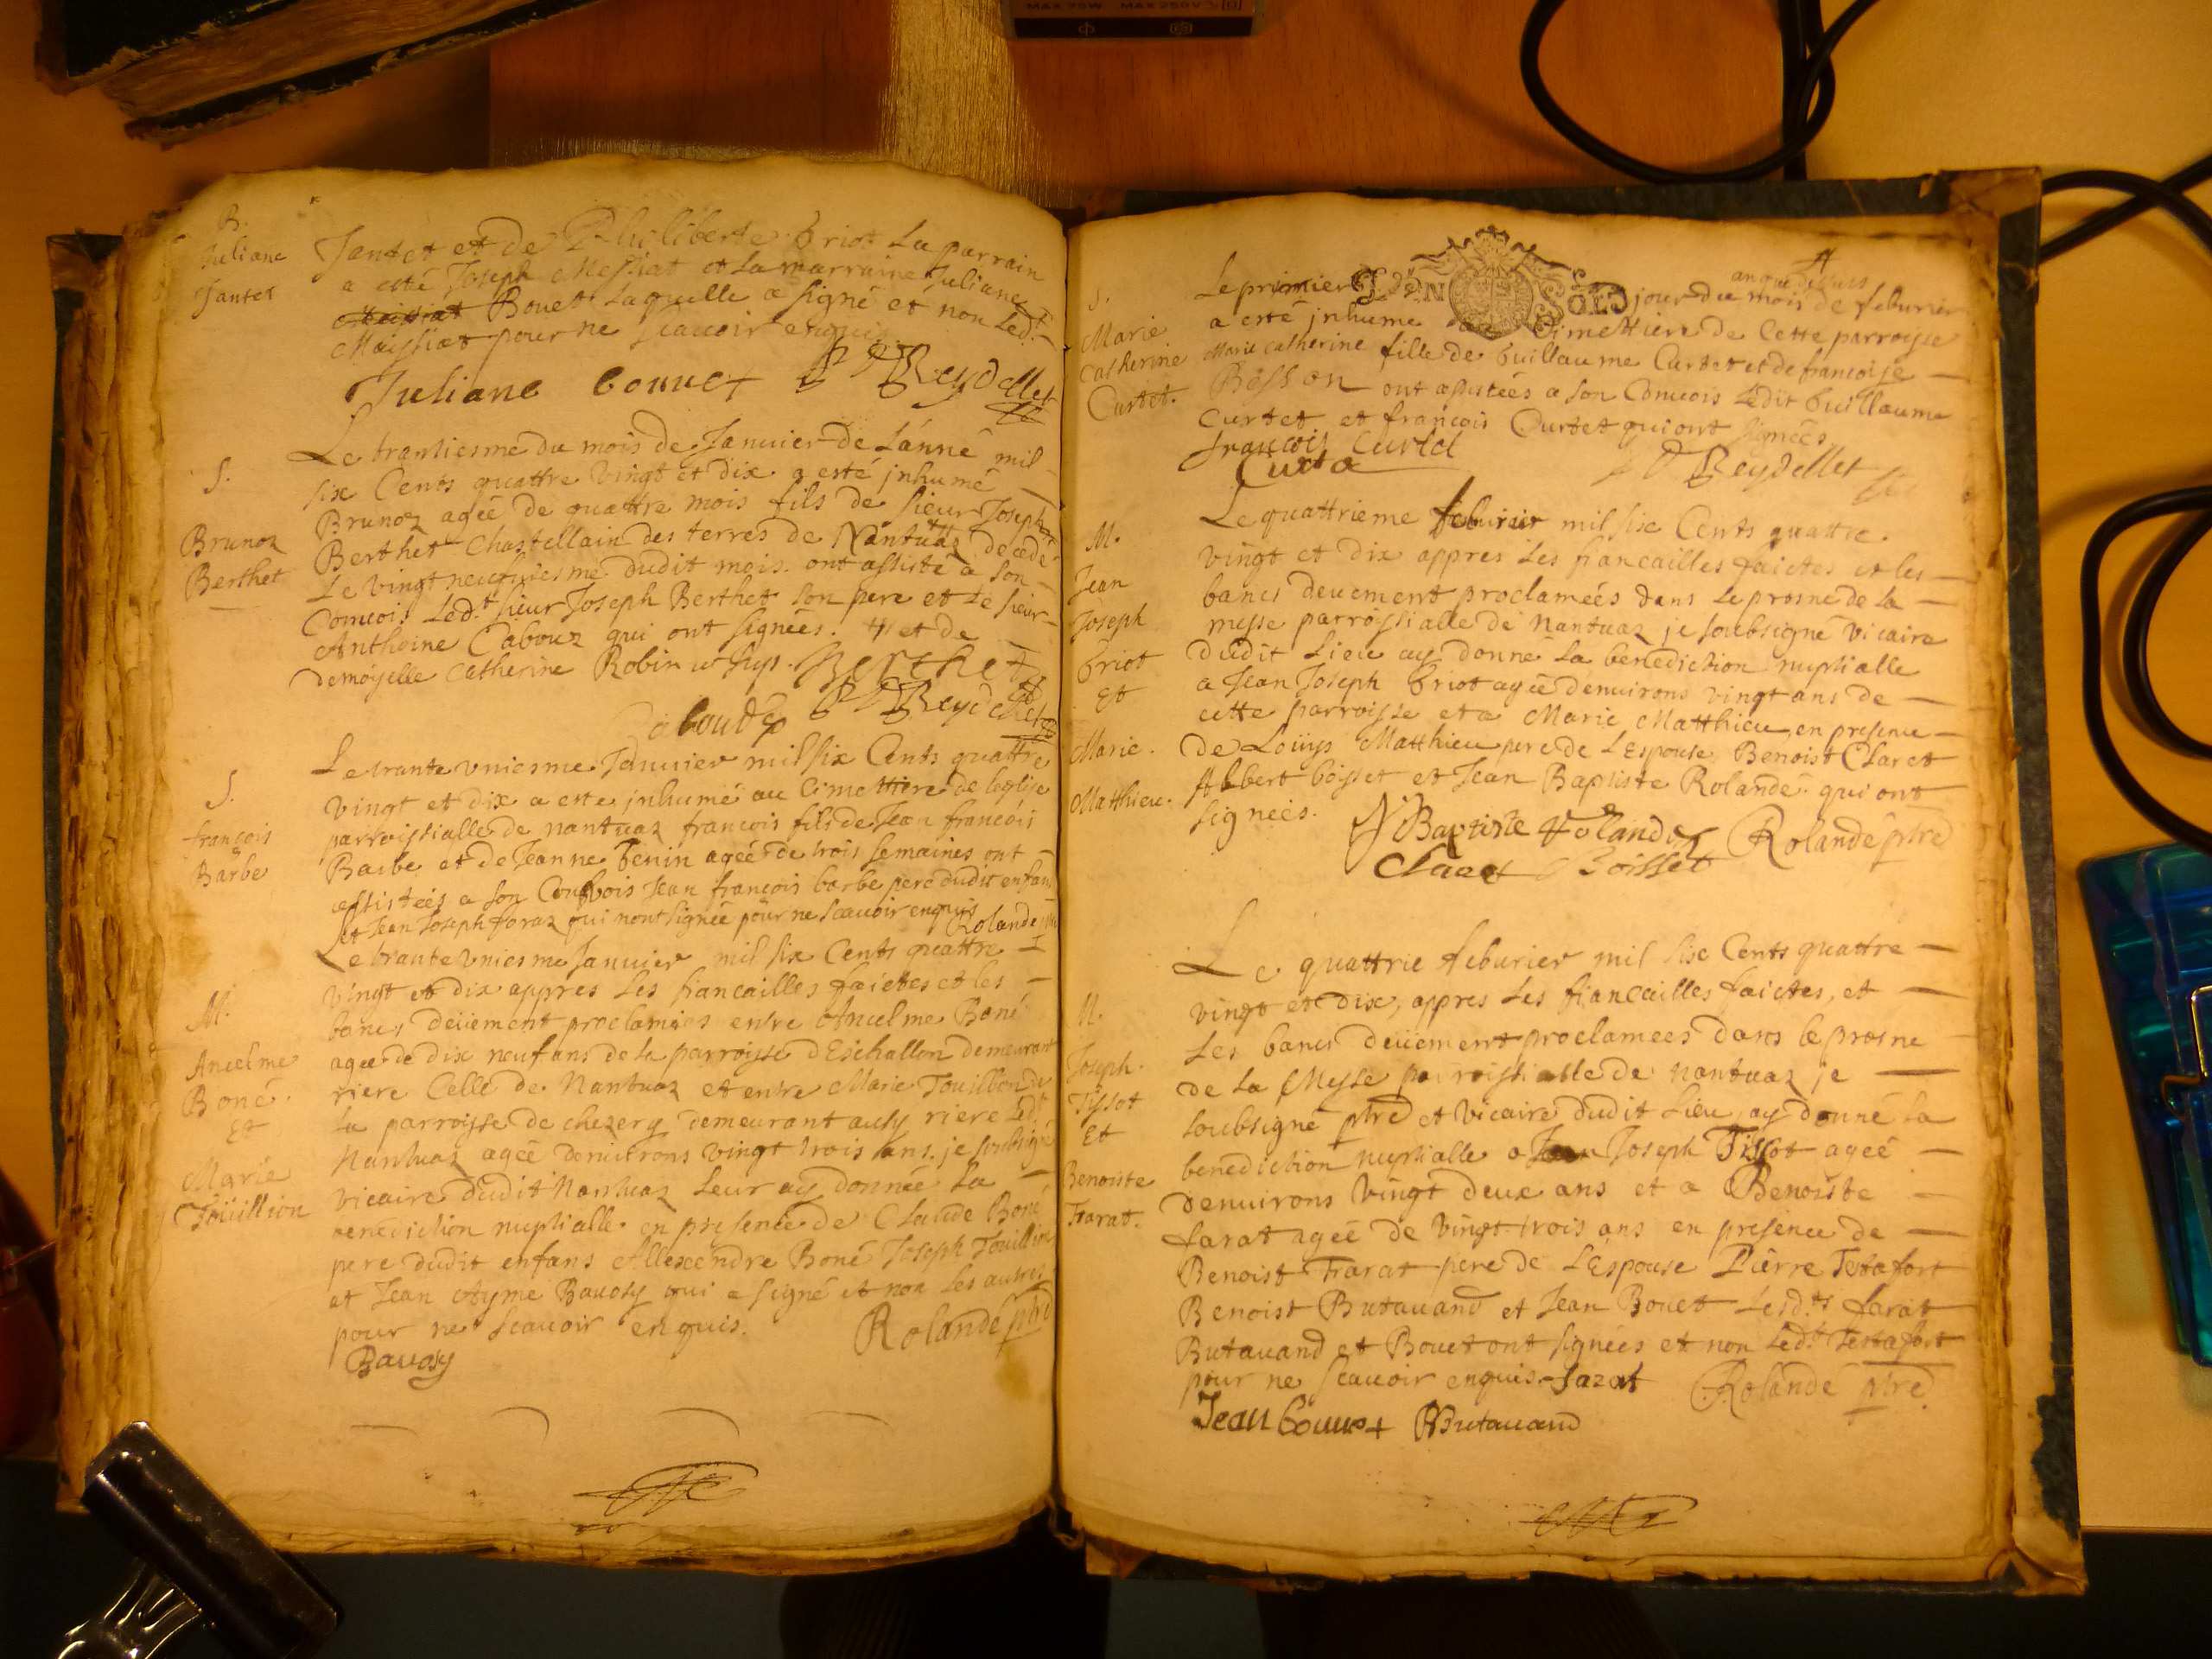 MAX 75W MAX 250V
B.
Juliane
Jantet
Jantet et de Philiberte Briot La parrain
a esté Joseph Messiat et La marraine Juliane
Bouet Laquelle a signé et non Led.t
Maissiat pour ne scauoir enquis
Juliane bouuet Reydellet
S.
Brunoz
Berthet
Le trantiesme du mois de Januier de Lánné mil
six Cents quattre vingt et dix a esté jnhumé
Brunoz ageé de quattre mois fils de sieur Joseph
Berthet Chastellain des terres de Nantuaz decedé
Le vingt neufuiesme dudit mois. ont assisté a son
Conuois Led.t sieur Joseph Berthet son pere et Le sieur
Anthoine Cabouz qui ont signées. # et de
demoyselle Catherine Robin
Berthet
Reydellet
S.
françois
Barbe
Le trante vniesme Januier mil six Cents quattre
vingt et dix a este jnhumé au Cimettiere de leglise
parroissialle de nantuaz francois fils de Jean francois
Barbe et de Jeanne Benin ageé de trois semaines ont
assisteés a son Jean françois barbe pere dudit enfan
et Jean Joseph foraz qui nont signée pour ne scauoir enquis
Rolande
M.
Ancelme
Boné.
Et
Marie
Toüillion
Le trante vniesme Januier mil six Cents quattre
vingt et dix appres Les fiancailles faictes et les
bancs deüement proclamées entre Ancelme Boné
ageé de dix neuf ans de la parroisse dEschallon demeurant
riere Celle de Nantuaz et entre Marie Touillon de
La parroisse de chezery demeurant ausy riere Led.t
Nantuaz ageé denuirons vingt trois ans. je soubsigné
vicaire dudit Nantuaz Leur ay donnée La
benediction nuptialle en presence de Claude Boné
pere dudit enfans Allexendre Boné Joseph Touillion
et Jean Ayme Bauosy qui a signé et non Les autres
pour ne scauoir enquis. Rolande ptre
Bauosy
an que dessus
S.
Marie
Catherine
Curtet.
Le primier jour du mois de feburier
a esté jnhume Cimettiere de Cette parroisse
Marie Catherine fille de Guillaume Curtet et de francoise
Besson ont assistées a son Conuois Ledit Guillaume
Curtet et françois Curtet qui ont signées
francois Curtet
Reydellet
M.
Jean
Joseph
briot
Et
Marie.
Matthieu.
Le quattrieme feburier mil six Cents quattre.
vingt et dix appres Les fiancailles faictes et les
bancs deuement proclameés dans Le prosne de La
messe parroissialle de nantuaz je soubsigné vicaire
dudit Lieu ay donné La benediction nuptialle
a Jean Joseph briot ageé denuirons vingt ans de
cette parroisse et a Marie Matthieu, en presence
de Loüys Matthieu pere de LEspouse, Benoist Claret
Albert boisset et Jean Baptiste Rolande. qui ont
signées. J Baptiste Rolande Rolande ptre
Claret Boisset
M.
Joseph.
Tissot
Et
Benoiste
Farat.
Le quattrie feburier mil six Cents quattre
vingt et dix, appres Les fiancailles faictes, et
Les bancs deüement proclamees dans le prosne
de La Messe parroissialle de nantuaz je
soubsigné ptre et vicaire dudit Lieu, ay donné La
benediction nuptialle a Jean Joseph Tissot ageé
denuirons vingt deux ans et a Benoiste
farat ageé de vingt trois ans en presence de
Benoist Farat pere de LEspouse Pierre Testafort
Benoist Butauand et Jean Bouet Lesd.ts farat
Butauand et Bouet ont signées et non Led.t Testafort
pour ne scauoir enquis. farat Rolande ptre
Jean bouuet Butauand